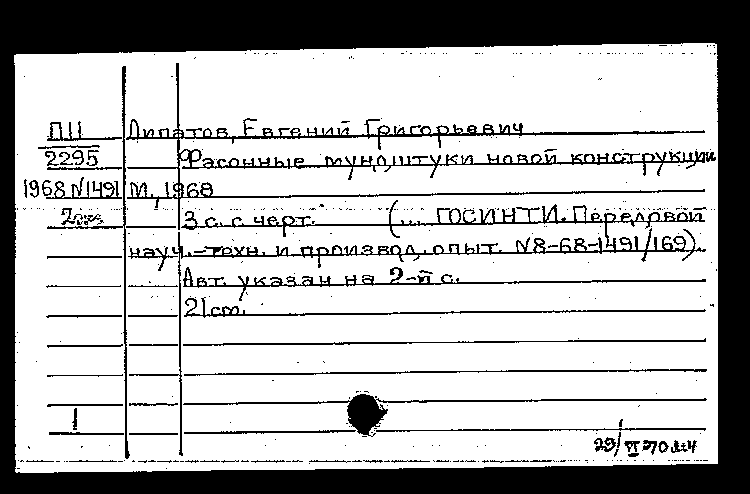 П11 Липатов, Евгений Григорьевич
2295 Фасонные мундштуки новой конструкции
1968 N1491 М., 1968
2экз 3 с. с черт. (... ГОСИНТИ. Передовой
науч.-техн. и производ. опыт. N8-68-1491/169).
Авт. указан на 2-й с.
21 cm.
1
29/VI 70